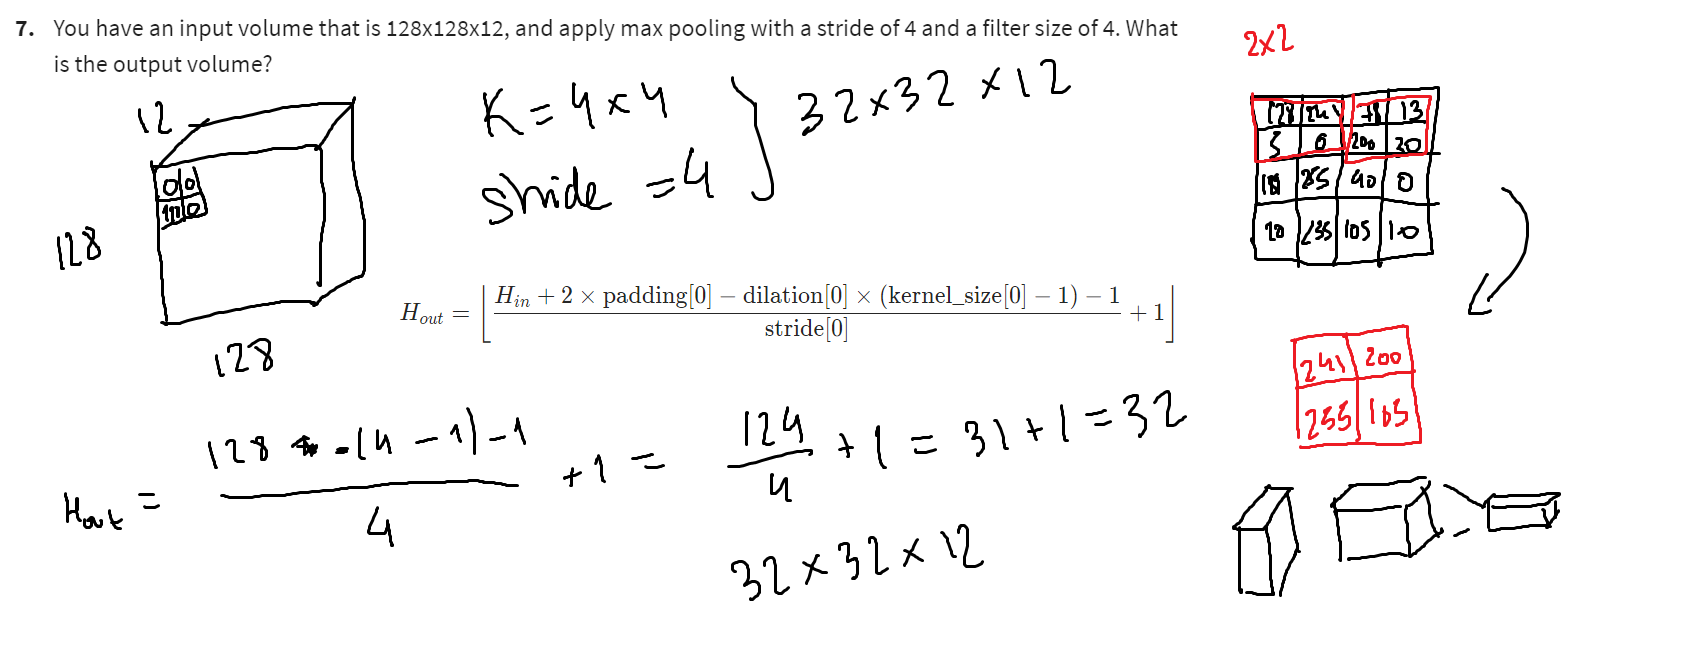 7. You have an input volume that is 128x128x12, and apply max pooling with a stride of 4 and a filter size of 4. What
is the output volume?
12
128
128
K = 4 x 4
stride = 4
} 32x32 x 12
H_out = ⌊ (H_in + 2 × padding[0] − dilation[0] × (kernel_size[0] − 1) − 1) / stride[0] + 1 ⌋
Hout = (128 - (4 - 1) - 1) / 4 + 1 = 124 / 4 + 1 = 31 + 1 = 32
32 x 32 x 12
2x2
13
200 20
255 40 0
20 235 105 10
241 200
255 105